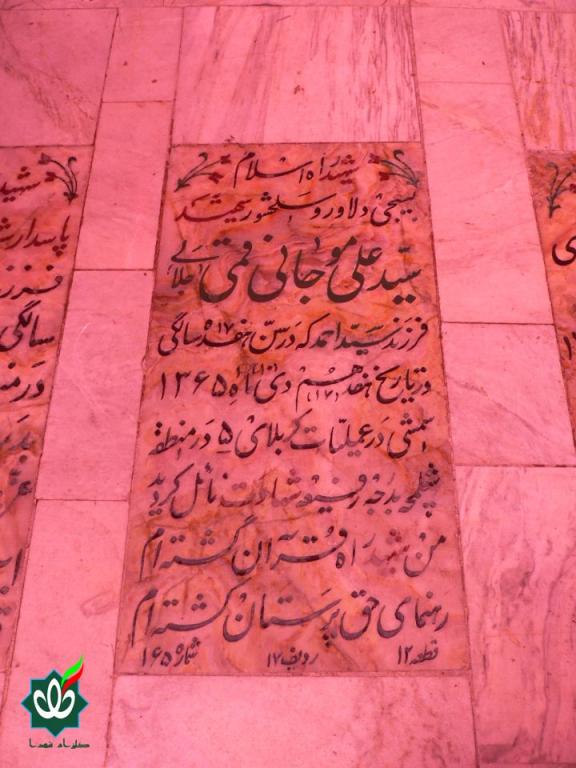 شهید راه اسلام
بسیجی دلاور و سلحشور شهید
سید علی موجانی قمی اعلایی
فرزند سید احمد که در سن هفده ۱۷ سالگی
در تاریخ هفدهم (۱۷) دی ماه ۱۳۶۵
شمسی در عملیات کربلای ۵ در منطقه
شلمچه بدرجه رفیع شهادت نائل گردید
من شهید راه قرآن گشته ام
رهنمای حق پرستان گشته ام
قطعه ۱۲ ردیف ۱۷ شماره ۱۶۵
شهید
پاسدار
فرزند
سالگی
در